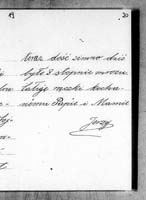 20
teraz dość zimno dziś
było 8 stopnie mrozu
całuję rączki kocha-
nému Papie i Mamie
Jerzy